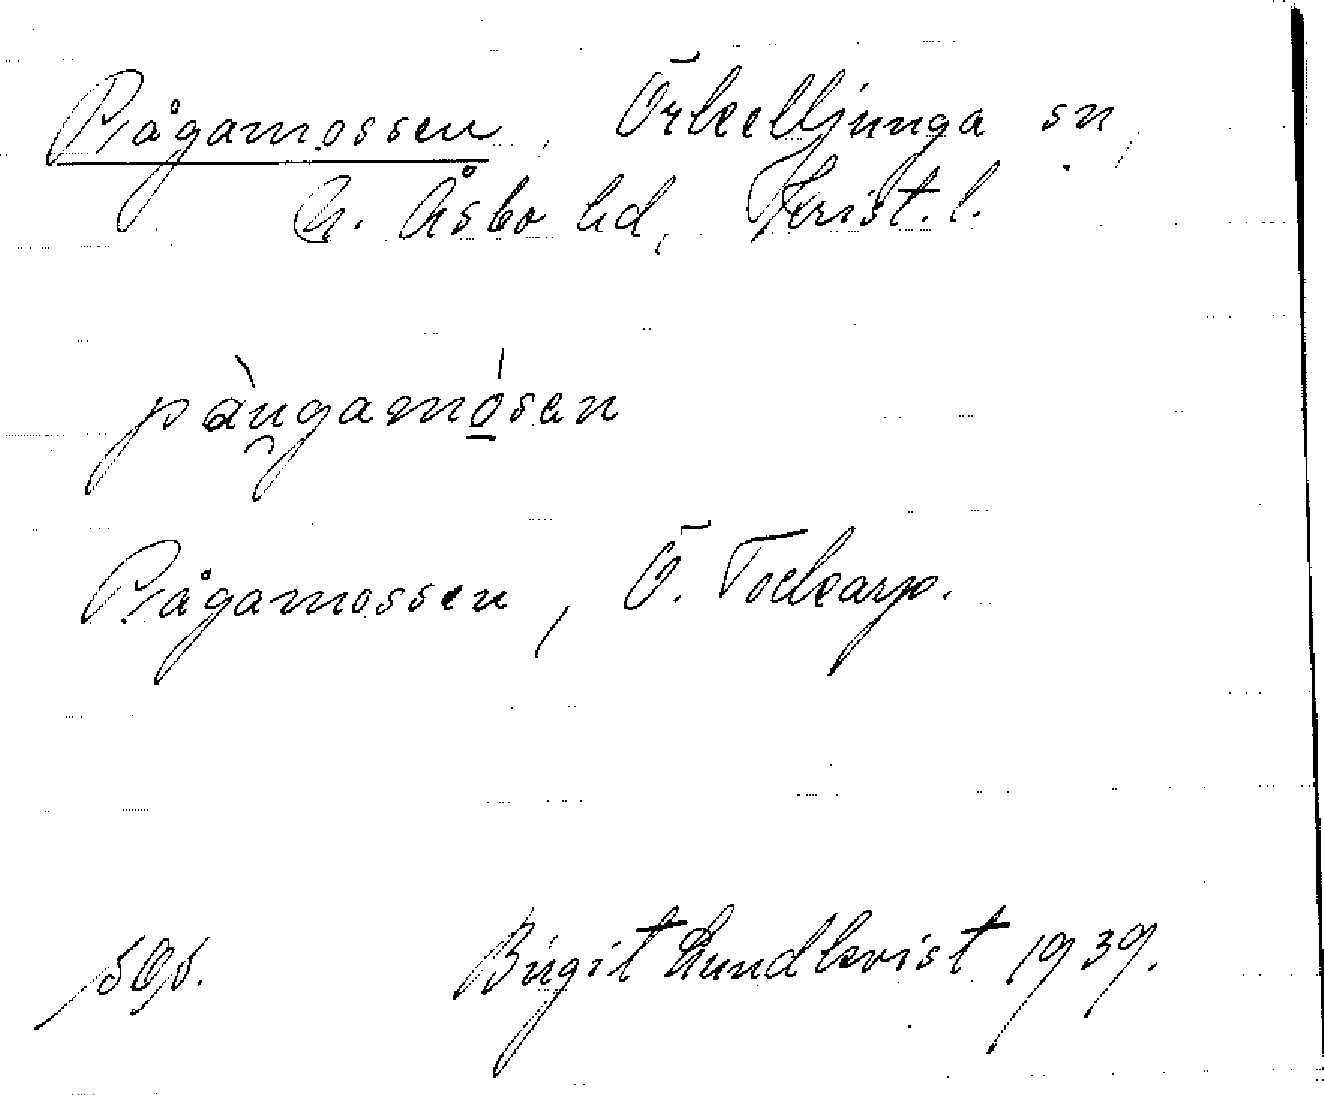 Pågamossen, Örkelljunga sn,
N. Åsbo hd, Krist. l.
pàu̯gamó̱sen
Pågamossen, Ö. Tockarp.
Birgit Lundkvist 1939.